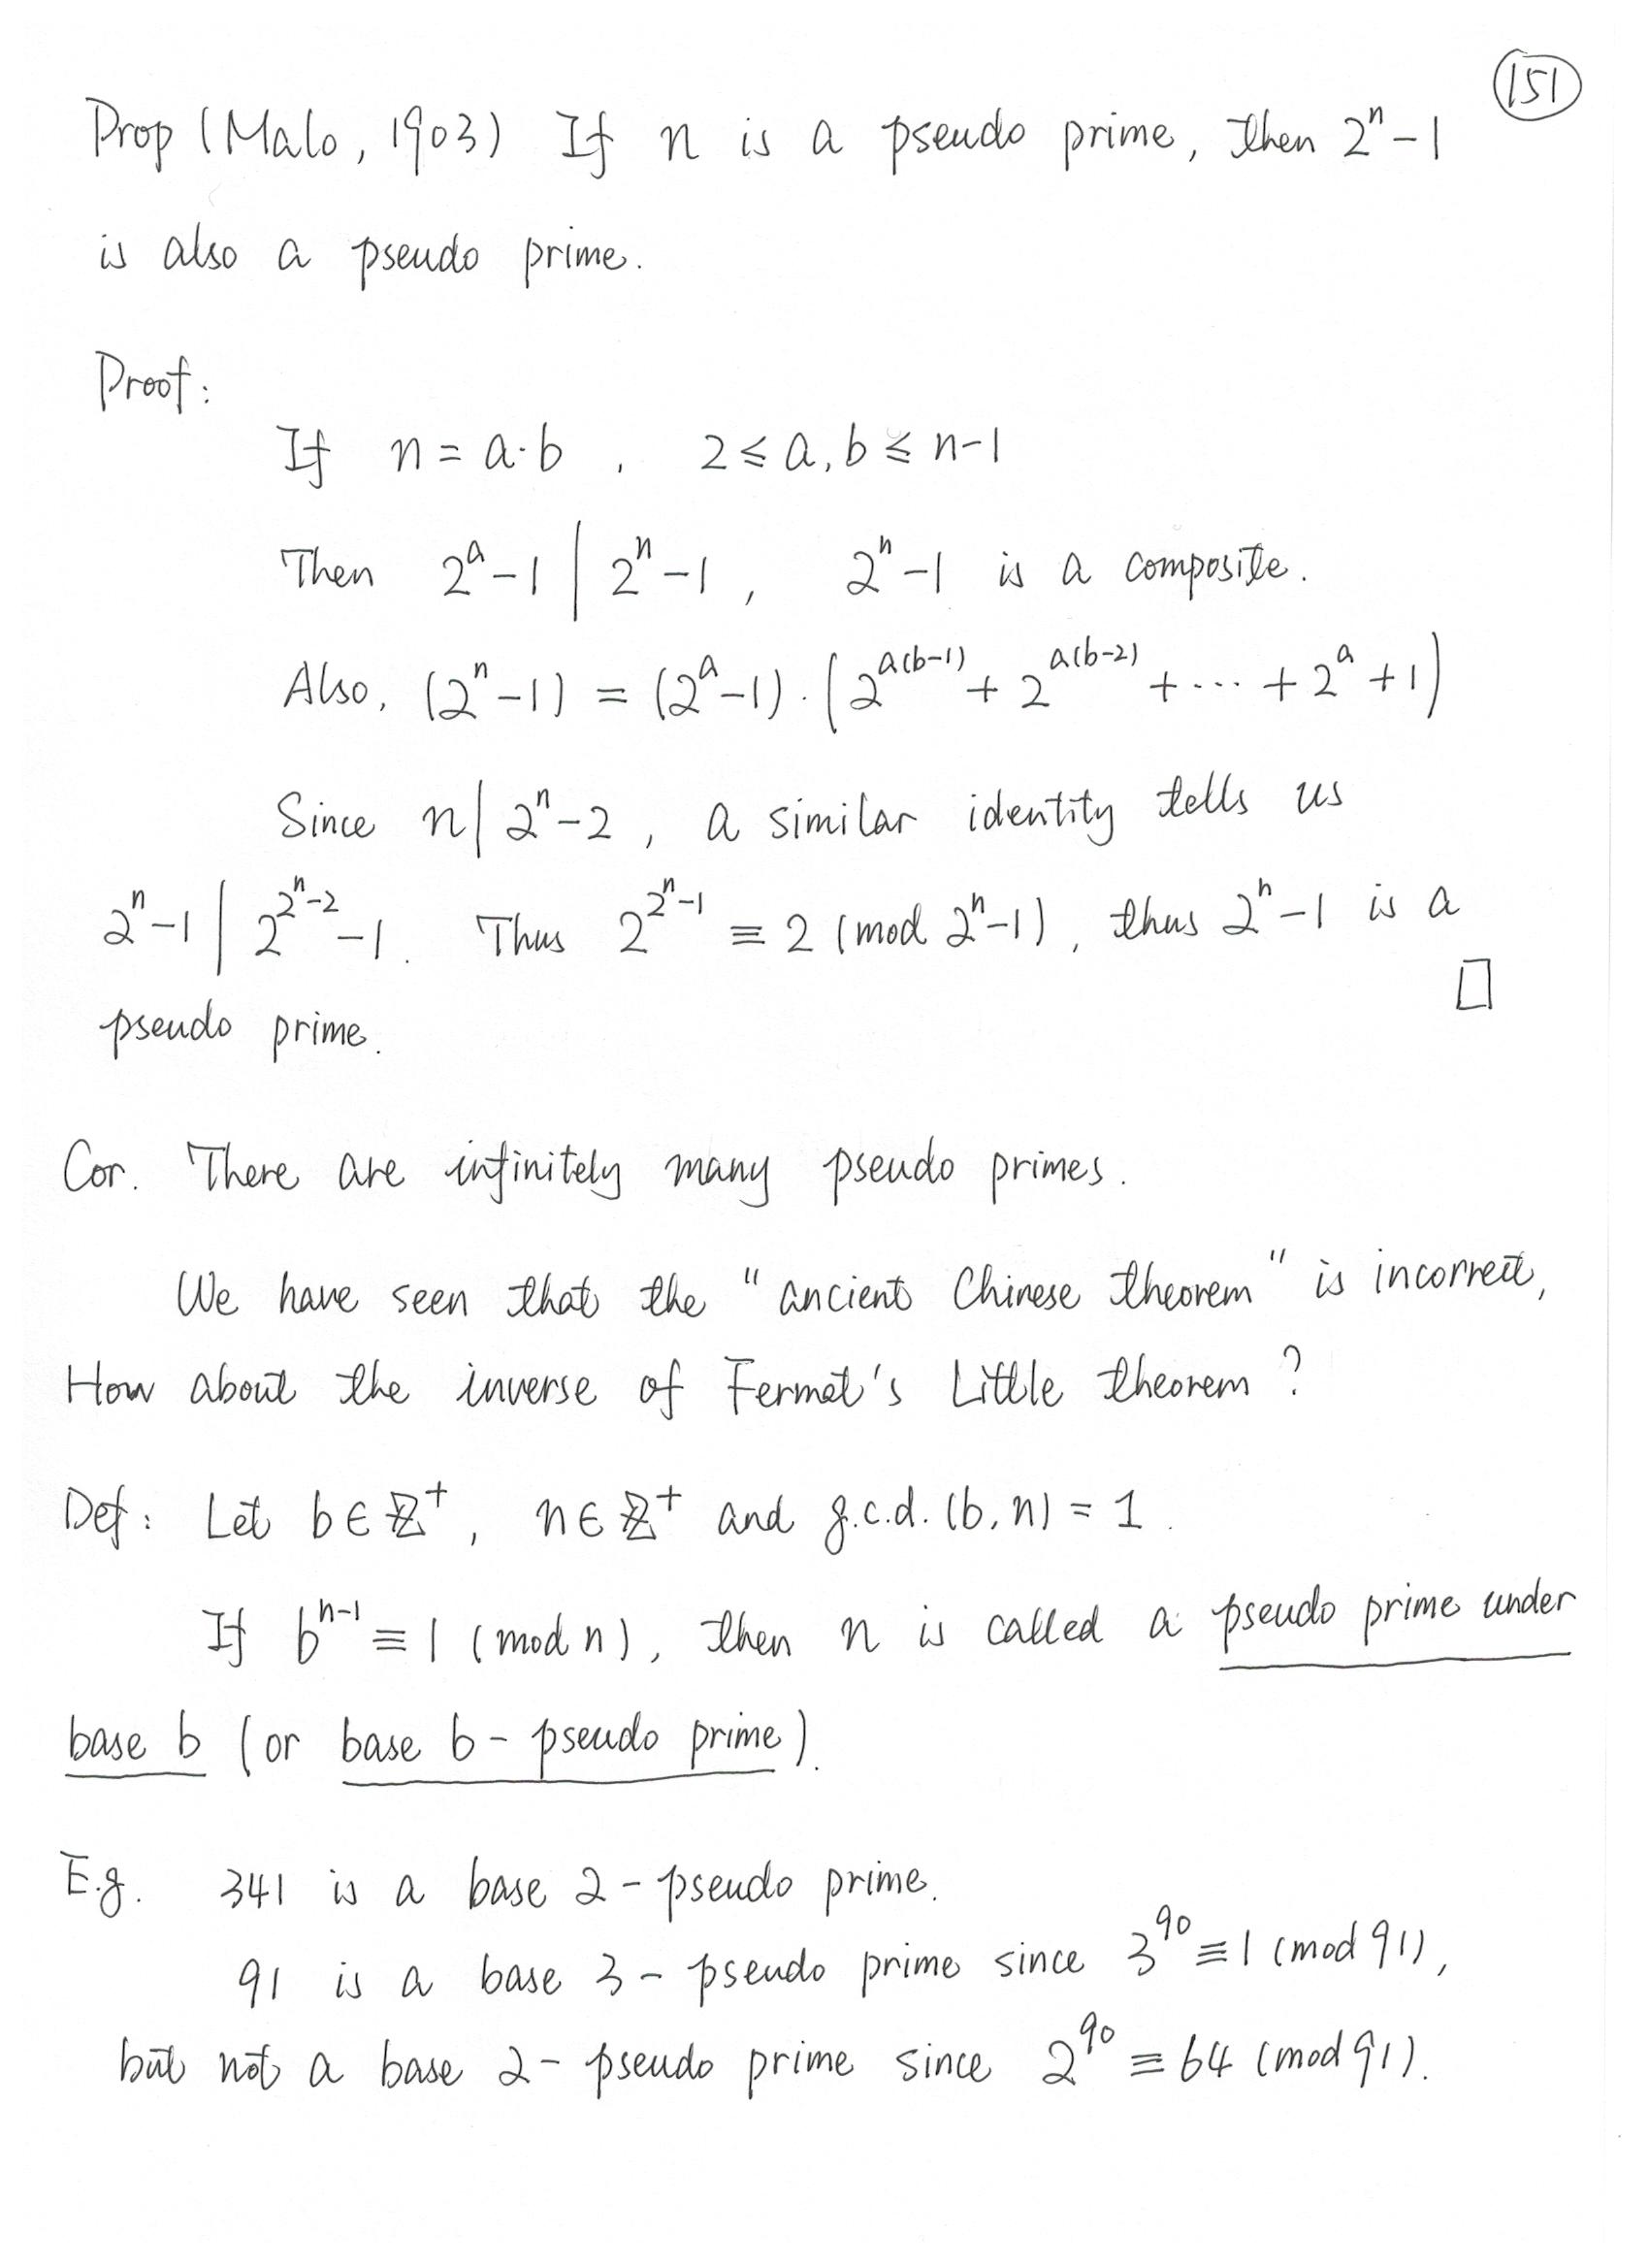 151
Prop (Malo, 1903) If n is a pseudo prime, then 2^n - 1
is also a pseudo prime.
Proof:
If n = a·b , 2 ≤ a, b ≤ n-1
Then 2^a - 1 | 2^n - 1, 2^n - 1 is a composite.
Also, (2^n - 1) = (2^a - 1) · (2^{a(b-1)} + 2^{a(b-2)} + ··· + 2^a + 1)
Since n | 2^n - 2, a similar identity tells us
2^n - 1 | 2^{2^n - 2} - 1. Thus 2^{2^n - 1} ≡ 2 (mod 2^n - 1), thus 2^n - 1 is a
pseudo prime. □
Cor. There are infinitely many pseudo primes.
We have seen that the "ancient Chinese theorem" is incorrect,
How about the inverse of Fermat's Little theorem?
Def: Let b ∈ ℤ^+, n ∈ ℤ^+ and g.c.d. (b, n) = 1.
If b^{n-1} ≡ 1 (mod n), then n is called a pseudo prime under
base b (or base b - pseudo prime).
E.g. 341 is a base 2 - pseudo prime.
91 is a base 3 - pseudo prime since 3^{90} ≡ 1 (mod 91),
but not a base 2 - pseudo prime since 2^{90} ≡ 64 (mod 91).